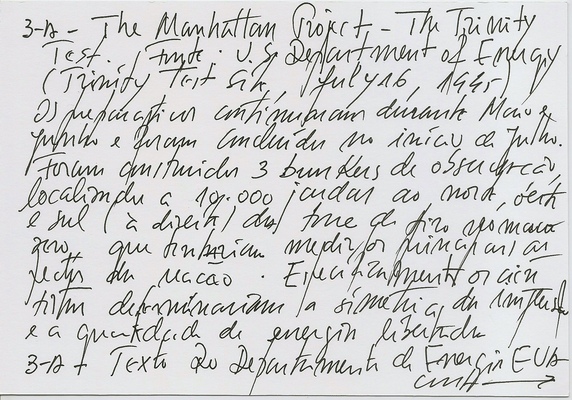 3-A - The Manhattan Project - The Trinity
Test. / Fonte: U.S. Department of Energy
(Trinity Test Site, July 16, 1945
Os preparativos continuaram durante Maio e
Junho e foram concluídos no início de Julho.
Foram construídos 3 bunkers de observação
localizados a 10.000 jardas ao norte, oeste
e sul (à direita) da torre de tiro
zero, que mediam os principais
da reacão. Especificamente os cien
tistas determinariam a simetria da implosão
e a quantidade de energia libertada
3-A - Texto do Departamento de Energia EUA